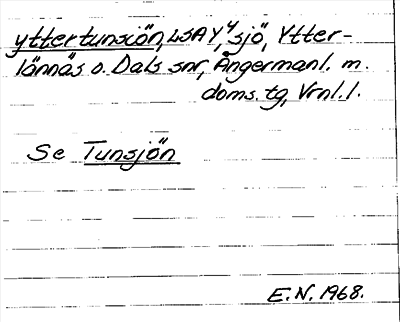 yttertunsiön, LSAY, 4 sjö, Ytter-
lännäs o. Dals snr, Ångermanl. m.
doms.tg, Vrnl. l.
Se Tunsjön
E.N. 1968.